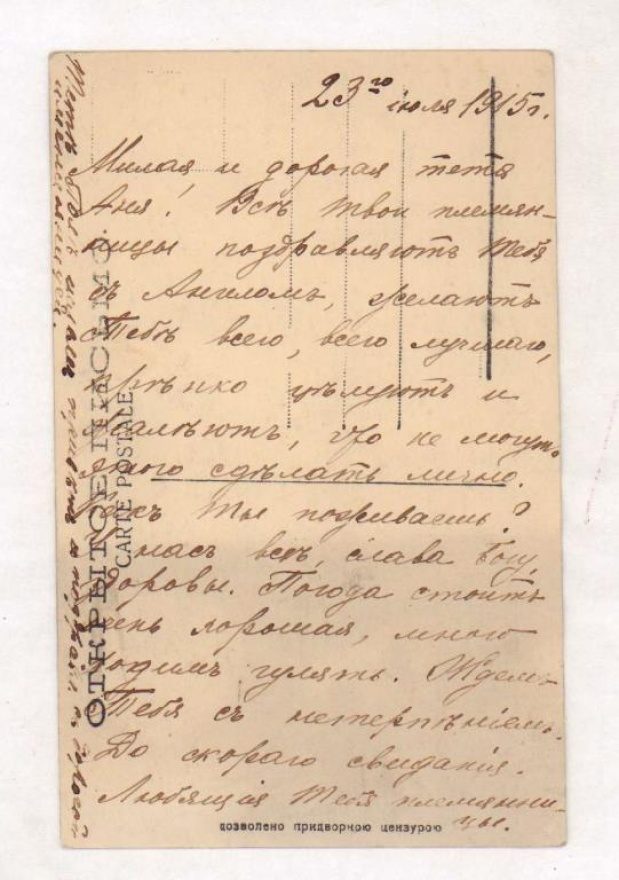 23го іюля 1915г.
Милая и дорогая тетя
Аня! Всѣ твои племян-
ницы поздравляютъ Тебя
съ Ангеломъ, желаютъ
Тебѣ всего, всего лучшаго,
крѣпко цѣлуютъ и
жалѣютъ, что не могутъ
этого сдѣлать лично.
Какъ Ты поживаешь?
У насъ всѣ, слава Богу,
здоровы. Погода стоитъ
очень хорошая, много
ходимъ гулять. Ждемъ
Тебя съ нетерпѣніемъ.
До скораго свиданія.
Любящія Тебя племянни-
цы.
ОТКРЫТОЕ ПИСЬМО.
CARTE POSTALE
дозволено придворною цензурою